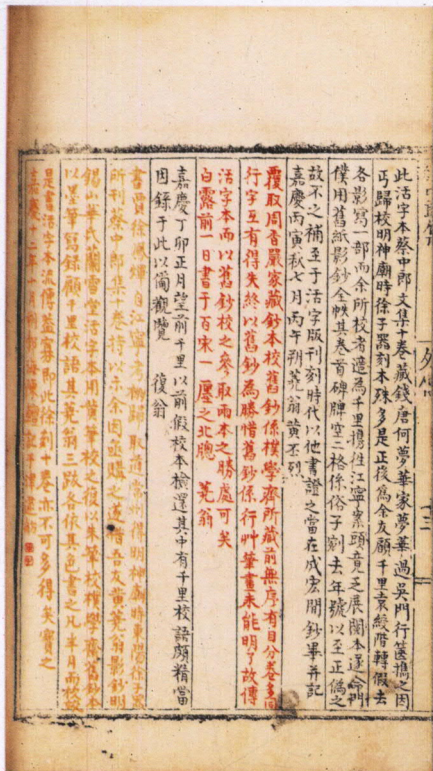 此活字本蔡中郎文集十卷藏錢唐何夢華家夢華過吳門行篋攜之因
丐歸校明神廟時徐子器刻本殊多是正後為余友顧千里袁綬階轉假去
各影寫一部而余所校者遣為千里攜往江寧案頭竟乏展閱本遂命門
僕用舊紙影鈔全帙其卷首碑牌空二格係俗子剜去年號以至正偽之
故不之補至于活字版刊刻時代以他書證之當在成宏間鈔畢并記
嘉慶丙寅秋七月丙午朔蕘翁黃丕烈
覆取周香嚴家藏鈔本校舊鈔係樸學齋所藏前無序有目分卷多同
行字互有得失終以舊鈔為勝惜舊鈔係行艸筆畫未能明了故傳
活字本而以舊鈔校之參取兩本之勝處可矣
白露前一日書于百宋一廛之北牕 蕘翁
嘉慶丁卯正月望前千里以前假校本檢還其中有千里校語頗精當
因錄于此以備觀覽 復翁
書賈徐 自江寧 取道常州得明 廟時東陽徐子器
所刊蔡中 集 卷詩以示余因亟購之 倩吾友黃蕘翁影鈔明
錫山華氏蘭雪堂活字 用黃筆校之復 朱筆校樸學齋舊鈔本
以墨筆 錄顧千里校語其蕘翁三跋各依其色書之凡半月而校
是書活字本流傳蓋寡即此徐刻十卷亦不可多得矣寶之
嘉慶十二年十月 海陳鱣